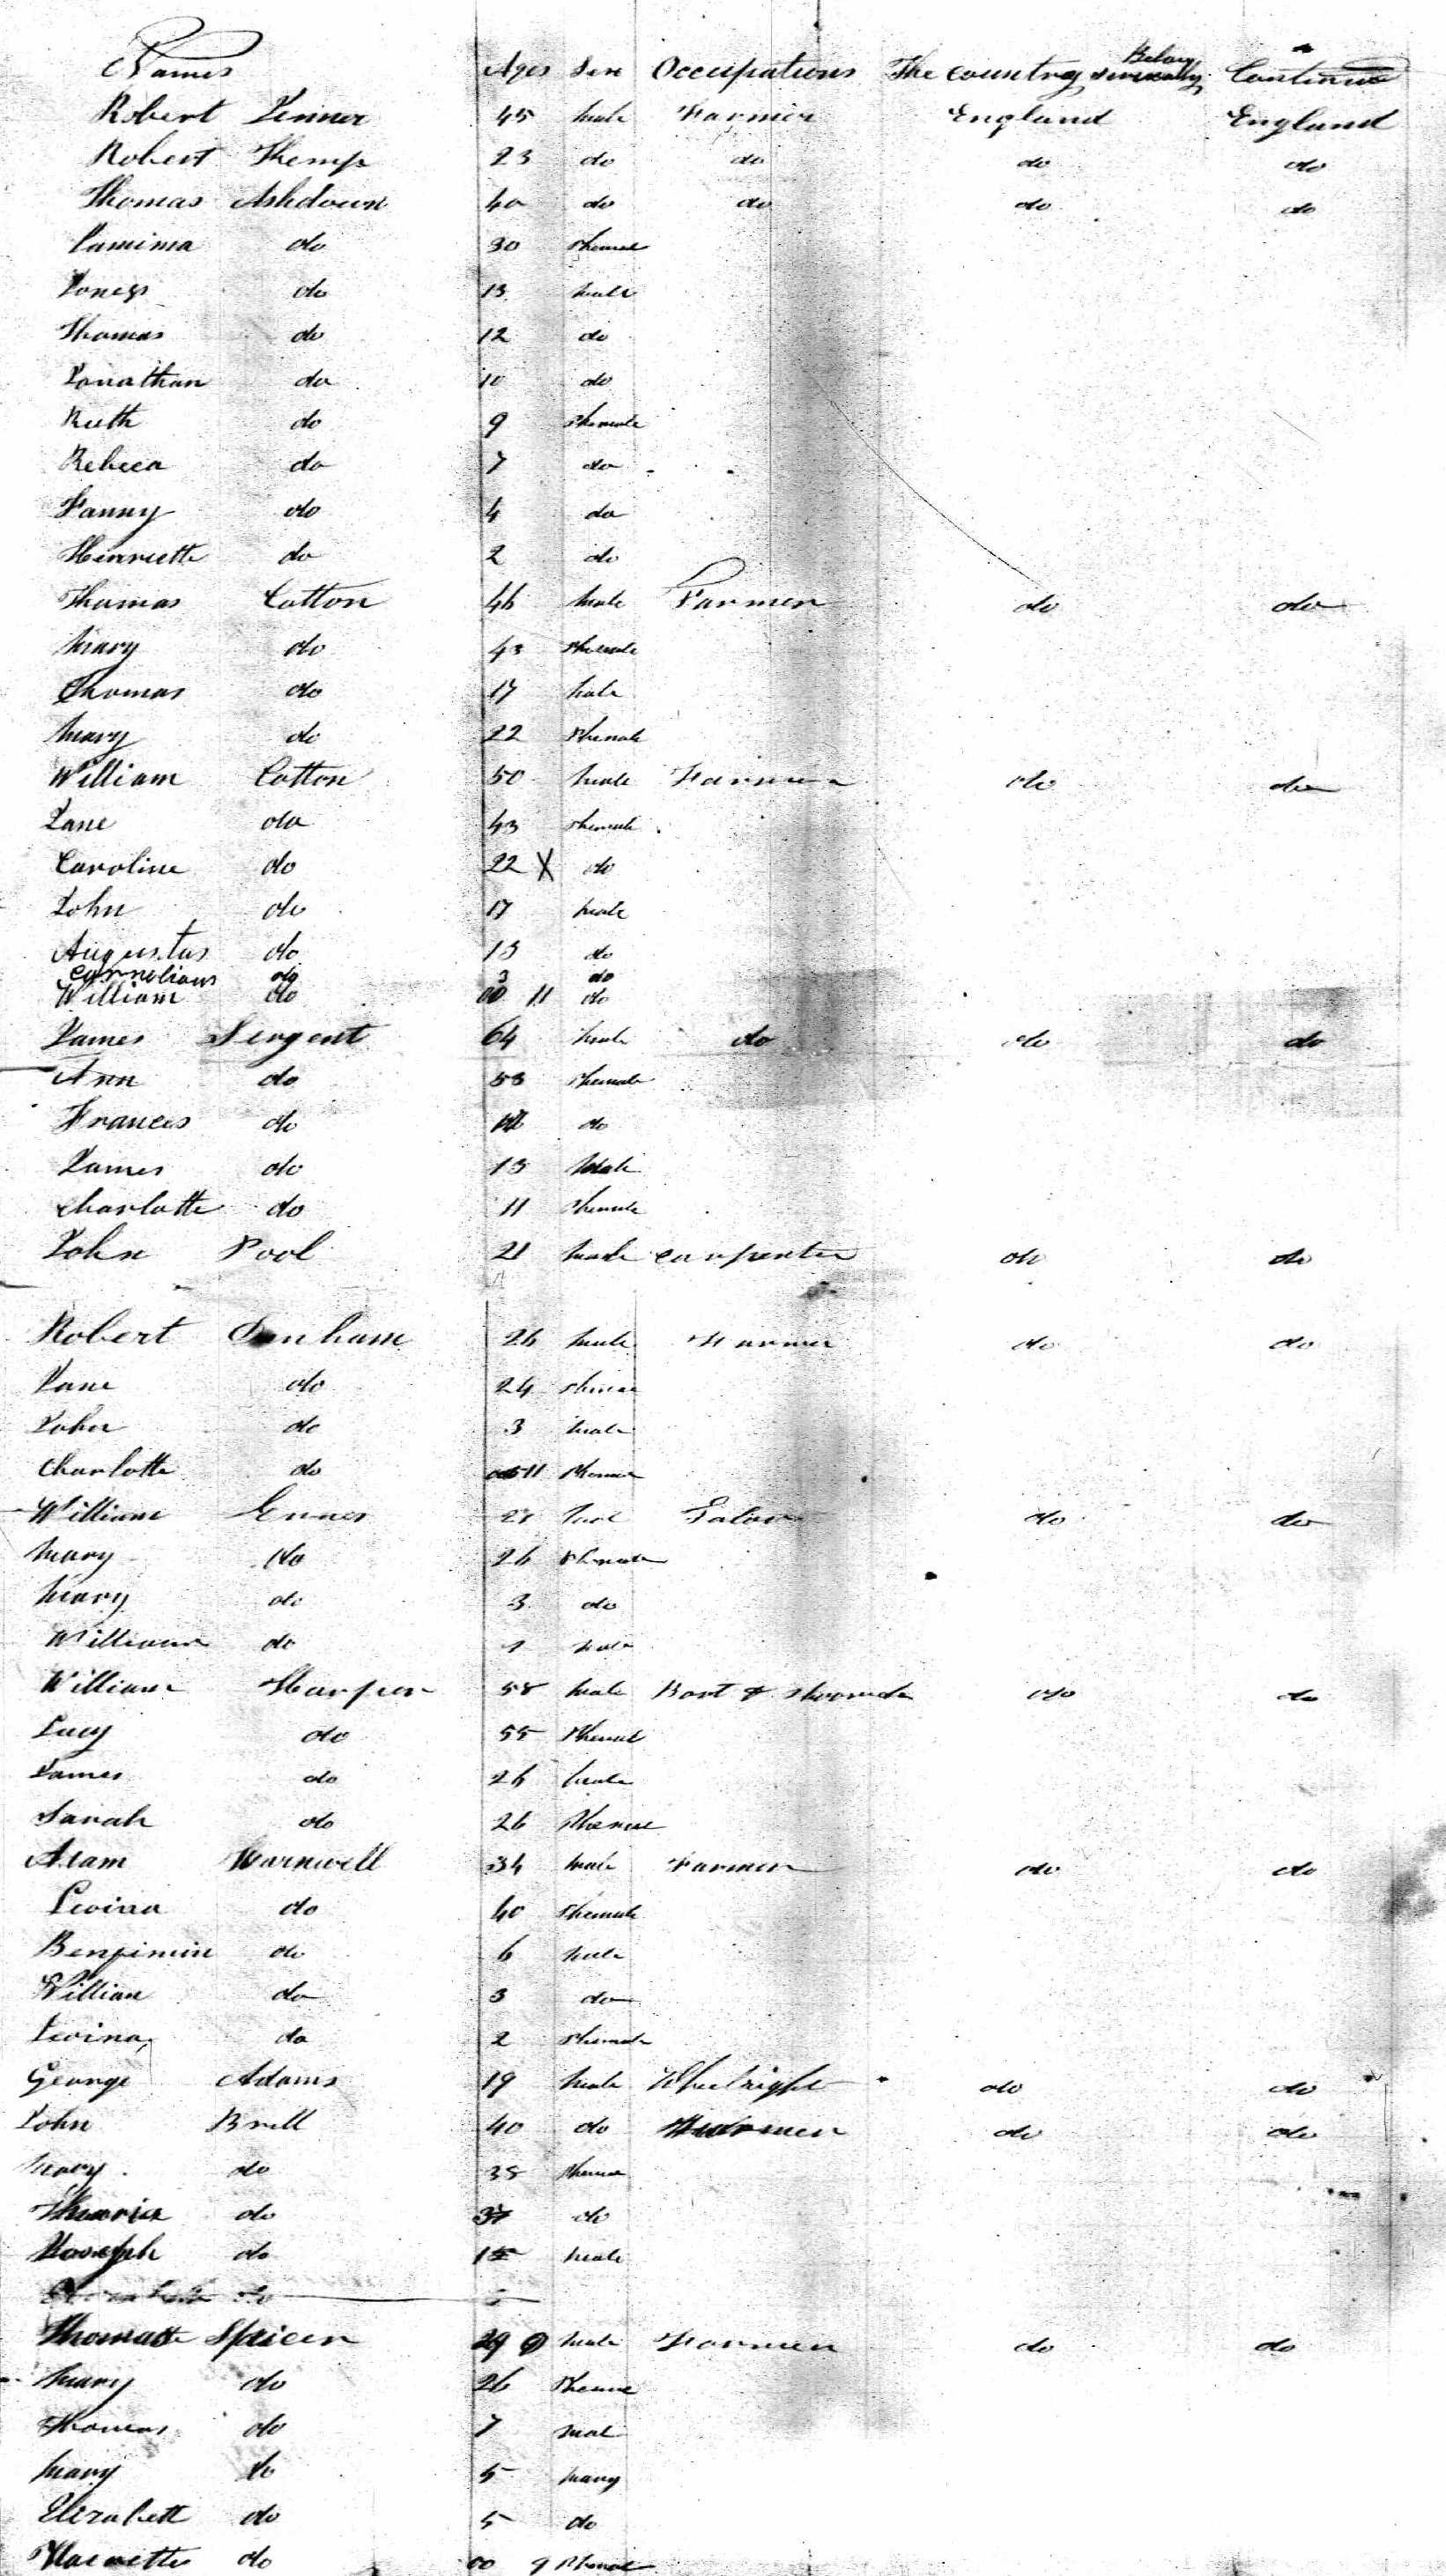 Names Ages Sex Occupations The country Belong Severally Continue
Robert Venner 45 male Farmer England England
Robert Kemp 23 do do do do
Thomas Ashdown 40 do do do do
Jamima do 30 Phemal
do 13 male
Thomas do 12 do
Jonathan do 10 do
Ruth do 9 Phemale
Rebeca do 7 do
Fanny do 4 do
Henriette do 2 do
Thomas Cotton 46 male Farmer do do
Mary do 43 Phemale
Thomas do 17 male
Mary do 22 Phemale
William Cotton 50 male Farmer do do
Jane do 43 Phemale
Caroline do 22 X do
John do 17 male
Augustus do 13 do
do 3 do
William do 00 11 do
James Sergent 64 male do do do
Ann do 53 Phemale
Frances do do
James do 13 Male
Charlotte do 11 Phemale
John Pool 21 male carpenter do do
Robert 26 male Farmer do do
Jane do 24 Phemal
John do 3 male
Charlotte do 11 Phemal
William do do
Mary do 26 Phemale
Mary do 3 do
William do 1 male
William Harper 58 male Boot & do do
Lucy do 55 Phemal
James do 26 male
Sarah do 26 Phemal
Adam 34 male Farmer do do
Levina do 40 Phemale
Benjimin do 6 male
William do 3 do
Levina do 2 Phemale
George Adams 19 male Whelright do do
John Brill 40 do Farmer do do
Mary do 38 Phemal
do do
Joseph do 15 male
Thomas Spicer 29 male Farmer do do
Mary do 26 Pheme
Thomas do 7 mal
Mary do 5 Mary
Elizabett do 5 do
Harnette do 00 9 Phemal